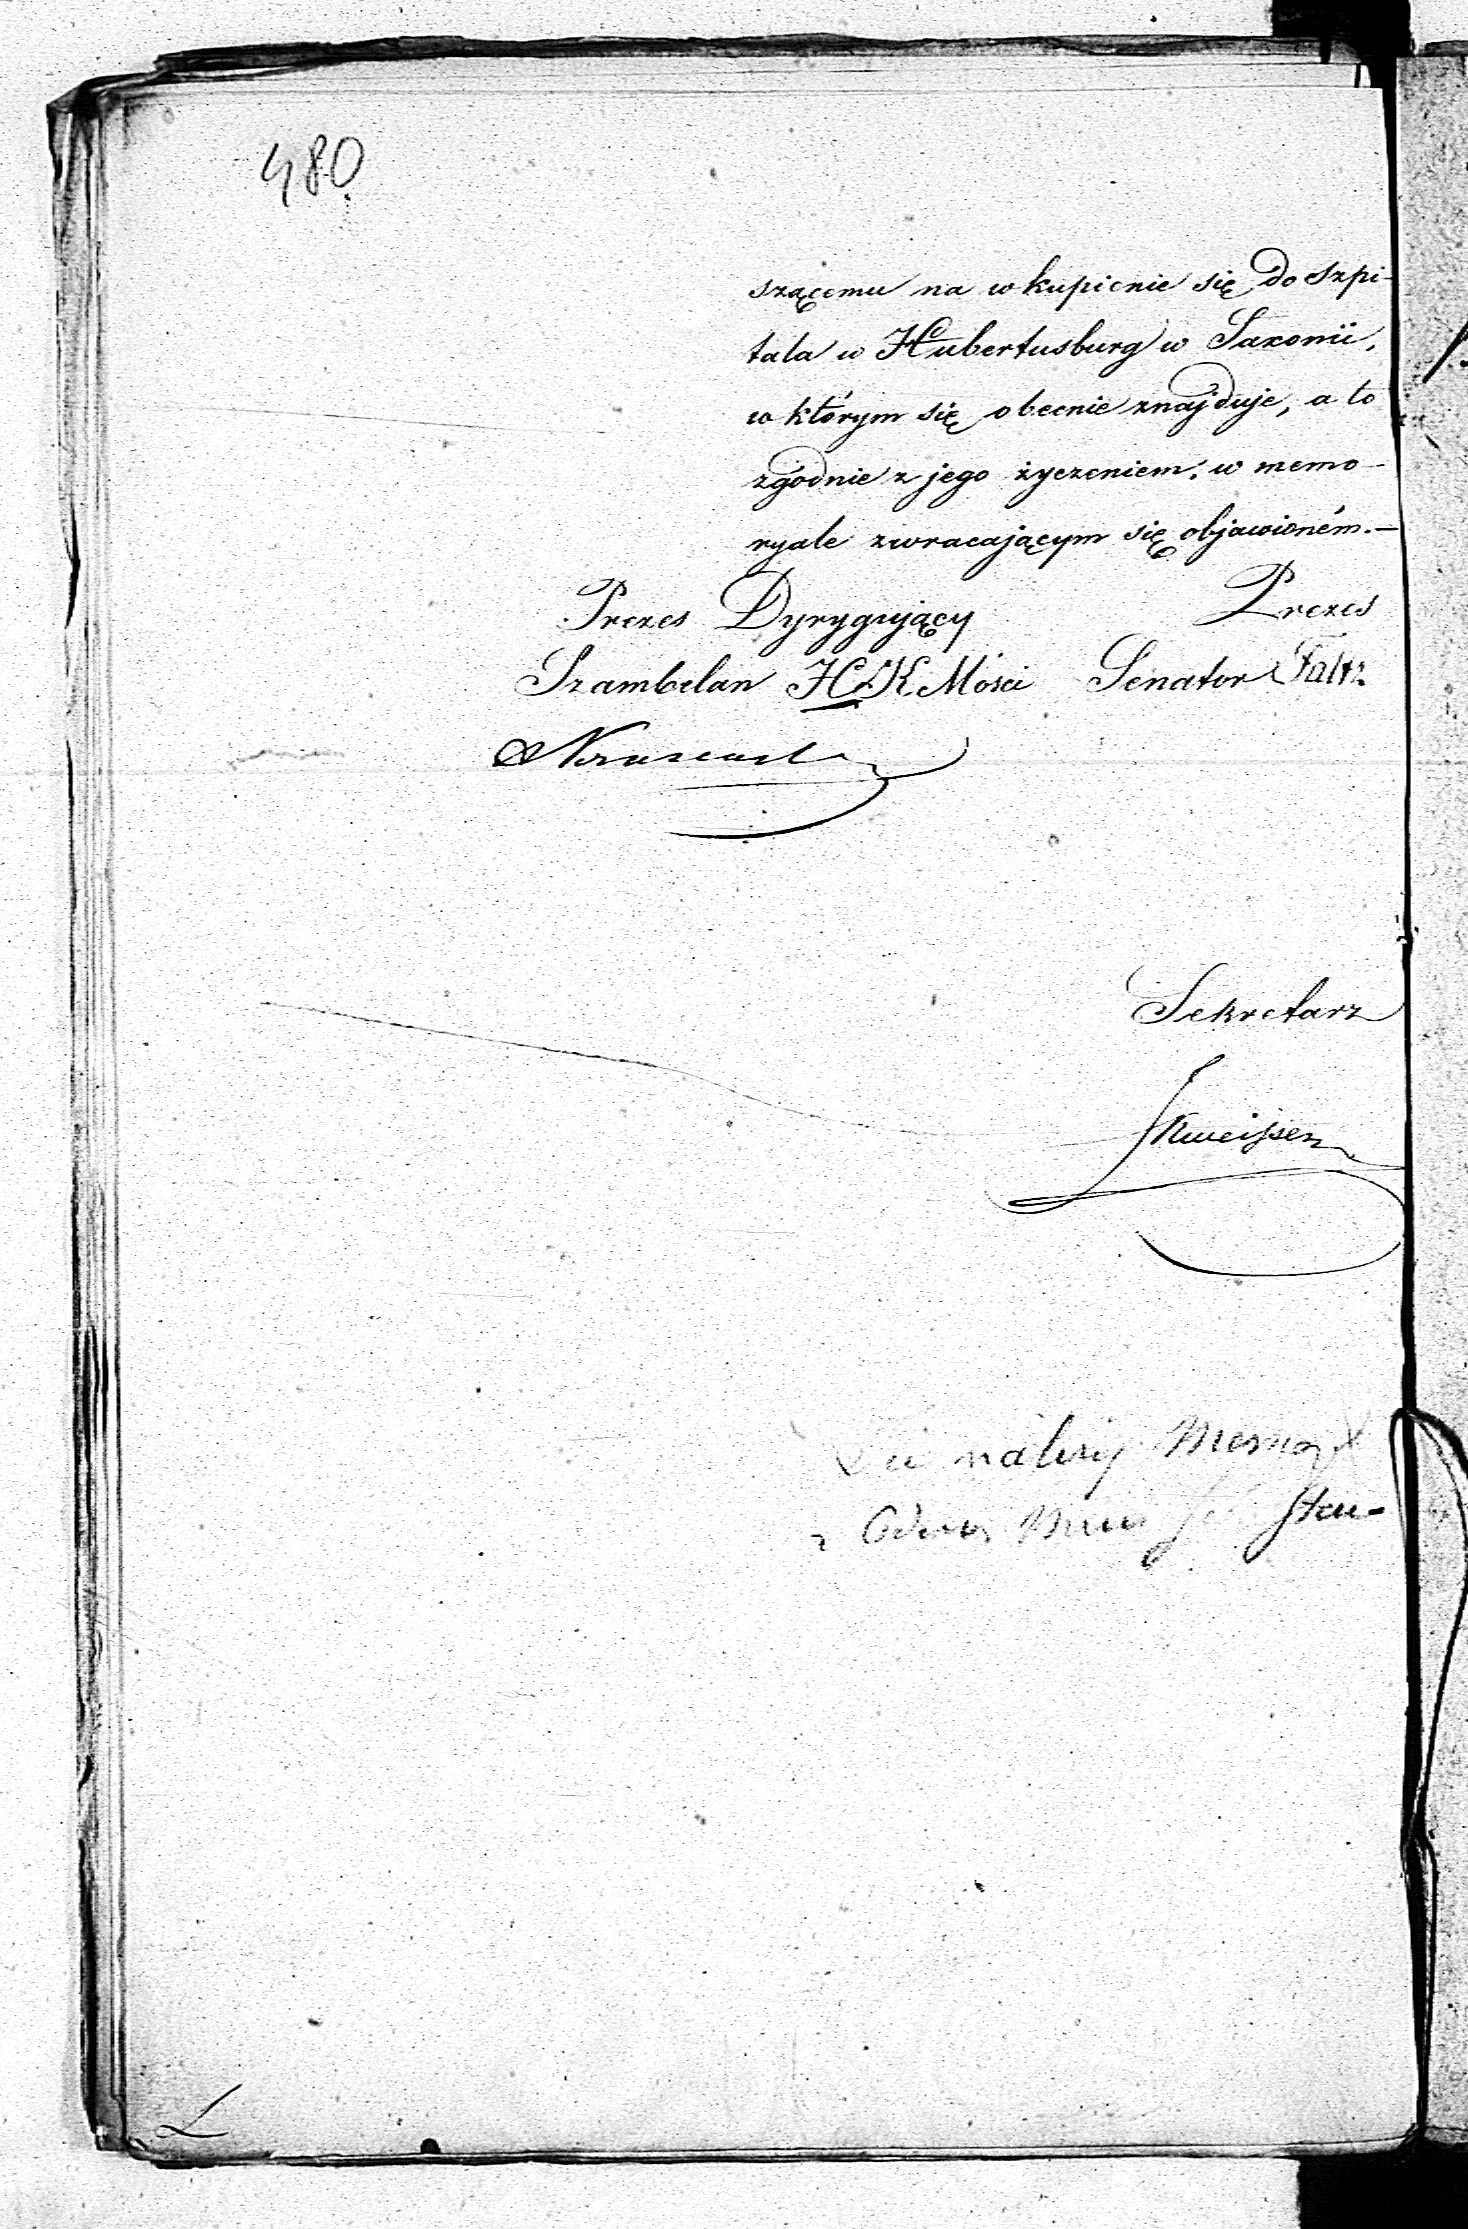 480
szącemu na wkupienie się do szpi-
tala w Hubertusburg w Saxonii,
w którym się obecnie znajduje, a to
zgodnie z jego życzeniem, w memo-
ryale zwracającym się objawioném.—
Prezes Dyrygujący Prezes
Szambelan JCKMości Senator Faltz
Sekretarz
należy